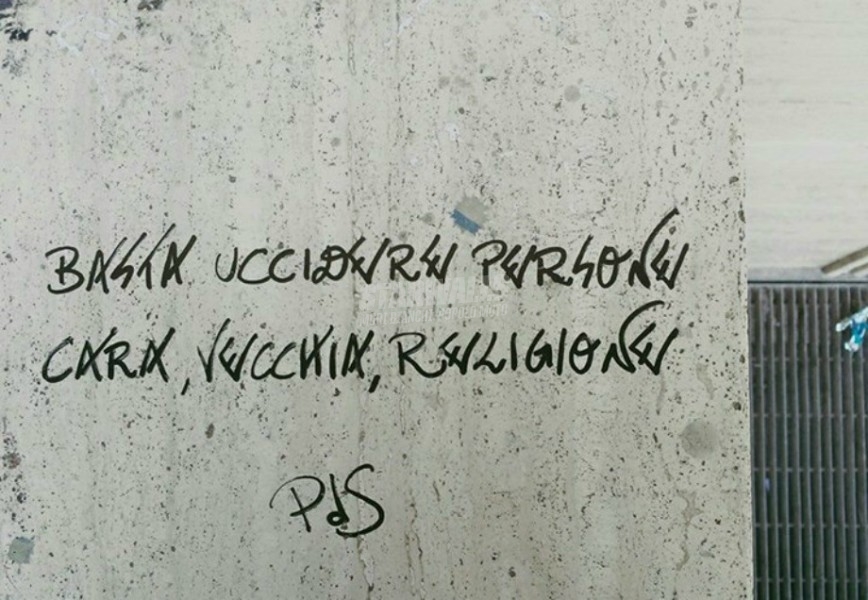 BASTA UCCIDERE PERSONE
CARA, VECCHIA, RELIGIONE
PdS